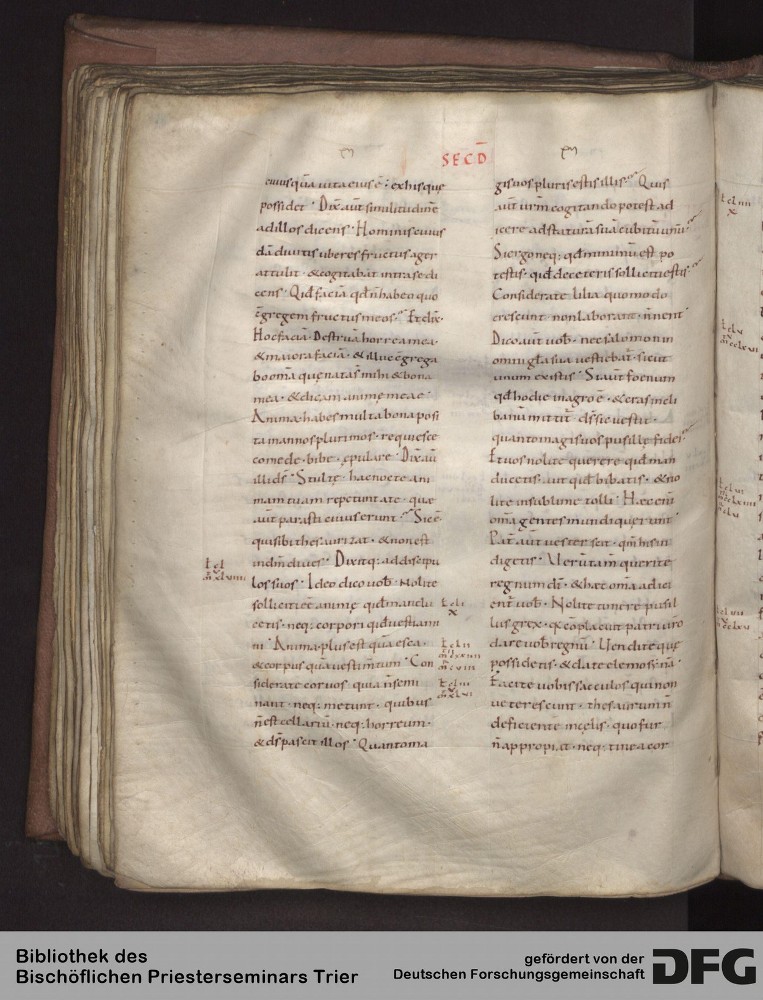 SECD
cuius quā uita eius ē · ex his quę
possidet · Dix aūt similitudinē
ad illos dicens · Hominis cuius
dā diuitis uberes fructus ager
attulit · & cogitabat intra se di
cens · Quid faciā qd n̄ habeo quo
c̄gregem fructus meos · Et dix ·
Hoc faciā · Destruā horrea mea ·
& maiora faciā · & illuc c̄grega
bo om̄a quę nata s̄ mihi & bona
mea · & dicam animę meae ·
Anima habes multa bona posi
ta in annos plurimos · requiesce
comede · bibe · epulare · Dix aū
illi d̄s · Stulte · hac nocte ani
mam tuam repetunt a te · quae
aūt parasti cuius erunt · Sic ē
qui sibi thesaurizat · & non est
in dm̄ diues · Dixitq: ad discipu
los suos · Ideo dico uob · Nolite
solliciti eē animę quid mandu
cetis · neq: corpori quid uestiami
ni · Anima plus est quā esca ·
& corpus quā uestimtum · Con
siderate coruos · quia n̄ semi
nant · neq: metunt · quibus
n̄ est cellariū · neq: horreum ·
& d̄s pascit illos · Quantoma
gis uos pluris estis illis · Quis
aūt urm̄ cogitando potest ad
icere ad staturā suā cubitū unū
Si ergo neq: qd minimū est po
testis · quid de ceteris solliciti estis
Considerate lilia quomodo
crescunt · non laborant · n̄ nent
Dico aūt uob · nec salomon in
omni gla sua uestiebat̄ · sicut
unum ex istis · Si aūt foenum
qd hodie in agro ē · & cras in cli
banū mittit̄ · d̄s sic uestit ·
quanto magis uos pusille fidei
Et uos nolite querere quid man
ducetis · aut quid bibatis · & no
lite in sublime tolli · Haec eni
om̄a gentes mundi querunt
Pat aūt uester scit · qm̄ his in
digetis · Uerūtam querite
regnum d̄i · & haec om̄a adici
ent̄ uob · Nolite timere pusil
lus grex · q̄ cōplacuit patri uro
dare uob regnū · Uendite quę
possidetis · & date elemosi nā ·
Facite uobis sacculos qui non
ueterescunt · thesaurum n̄
deficientē in celis · quo fur
n̄ appropiat · neq: tinea cor
Bibliothek des
Bischöflichen Priesterseminars Trier
gefördert von der
Deutschen Forschungsgemeinschaft
DFG